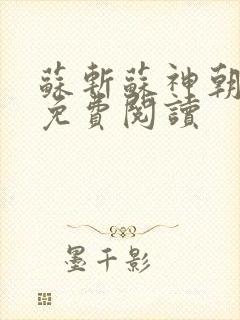 蘇斬蘇神朝
免費閱讀
墨千影